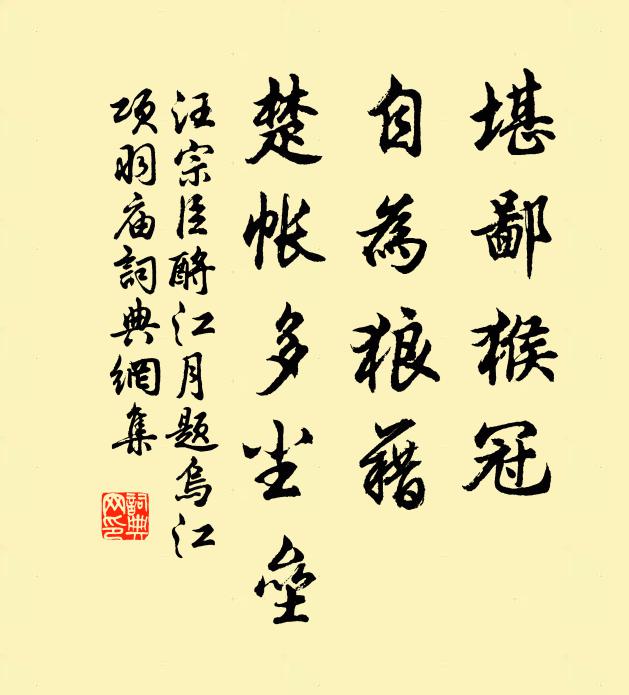 堪鄙猴冠
自為狼藉
楚帐多尘垒
汪宗臣酹江月题乌江
项羽庙詞典網集
詞典网印